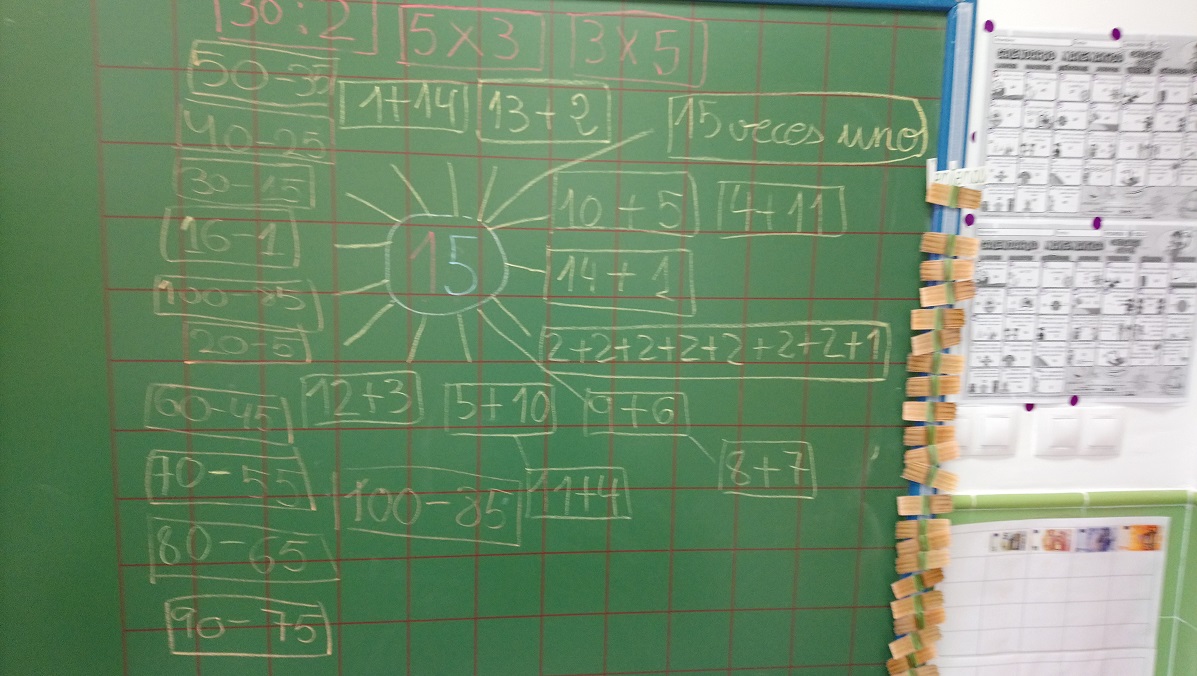 30:2
5x3
3x5
50-35
1+14
13+2
15 veces uno
40-25
30-15
10+5
4+11
16-1
15
14+1
100-85
20-5
2+2+2+2+2+2+2+1
60-45
12+3
5+10
9+6
70-55
100-85
11+4
8+7
80-65
90-75